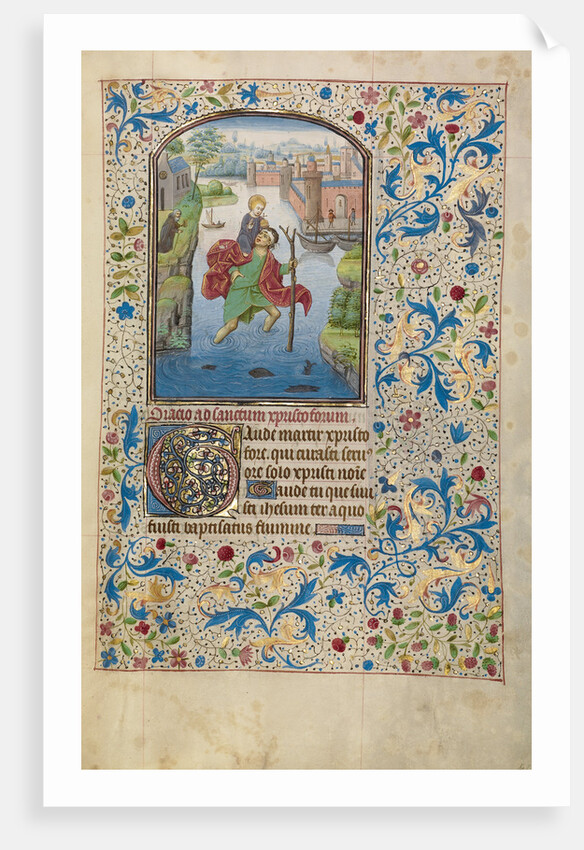 Oracio ad sanctum xpristoforum
Gaude martir xpristo
fore, qui curasti serui
ore solo xpristi noīe
Gaude tu que sus
sti ihesum ter a quo
fuisti baptisatus flumine